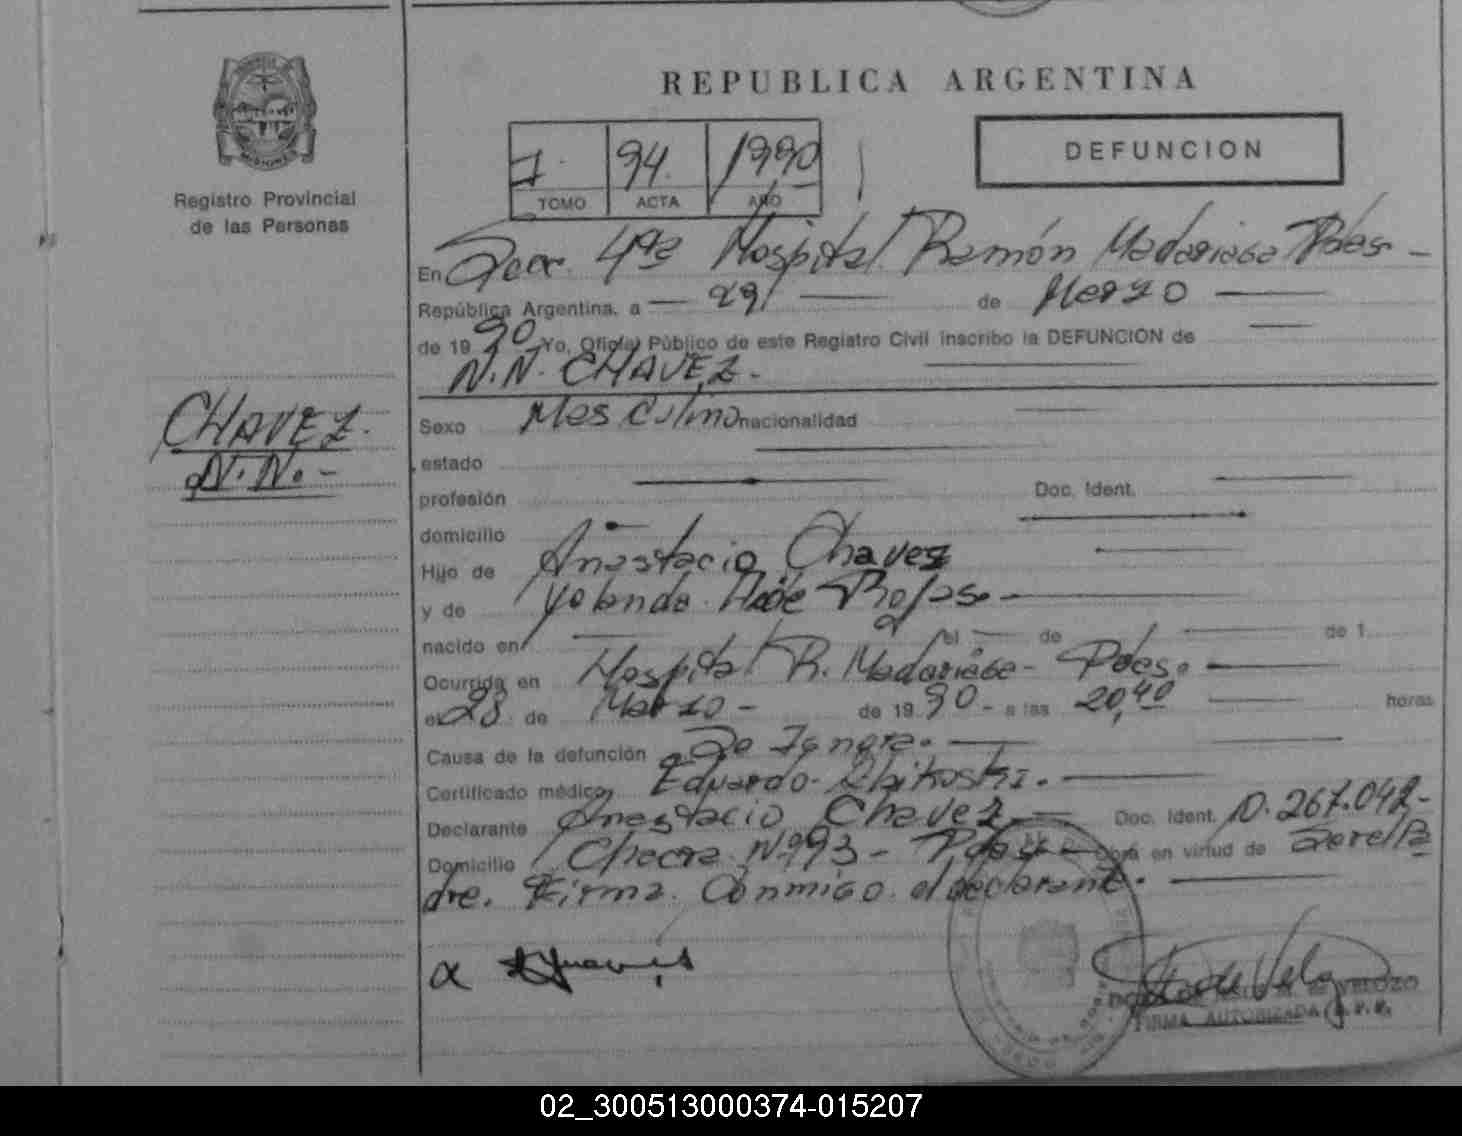 REPUBLICA ARGENTINA
MISIONES
Registro Provincial
de las Personas
DEFUNCION
1 94 1990
TOMO ACTA AÑO
En Secc. 4ta Hospital Ramón Madariaga Pdas -
República Argentina, a — 29 — de Marzo —
de 1990 Yo, Oficial Público de este Registro Civil inscribo la DEFUNCION de —
N.N. CHAVEZ. —
CHAVEZ.
N.N. -
Sexo Masculino nacionalidad —
estado —
profesión — Doc. Ident. —
domicilio —
Hijo de Anastacio Chavez —
y de Yolanda Aide Rojas —
nacido en — el — de — de 1
Ocurrida en Hospital R. Madariaga - Pdas. —
el 28 de Marzo - de 1990 - a las 20,40 — horas
Causa de la defunción Se Ignora. —
Certificado médico, Eduardo —
Declarante Anastacio Chavez — Doc. Ident. D. 267.042 -
Domicilio Chacra Nº 93 - Pdas — Obra en virtud de Ser el Pa
dre. Firma conmigo el declarante. —
VELOZO
FIRMA AUTORIZADA
02_300513000374-015207